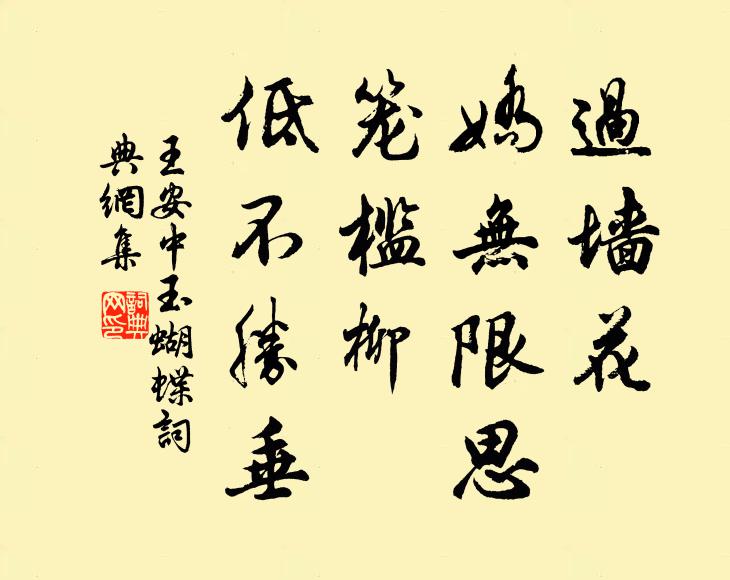 過墙花
嬌無限思
笼槛柳
低不勝垂
王安中玉蝴蝶詞
典網集
詞典
网印